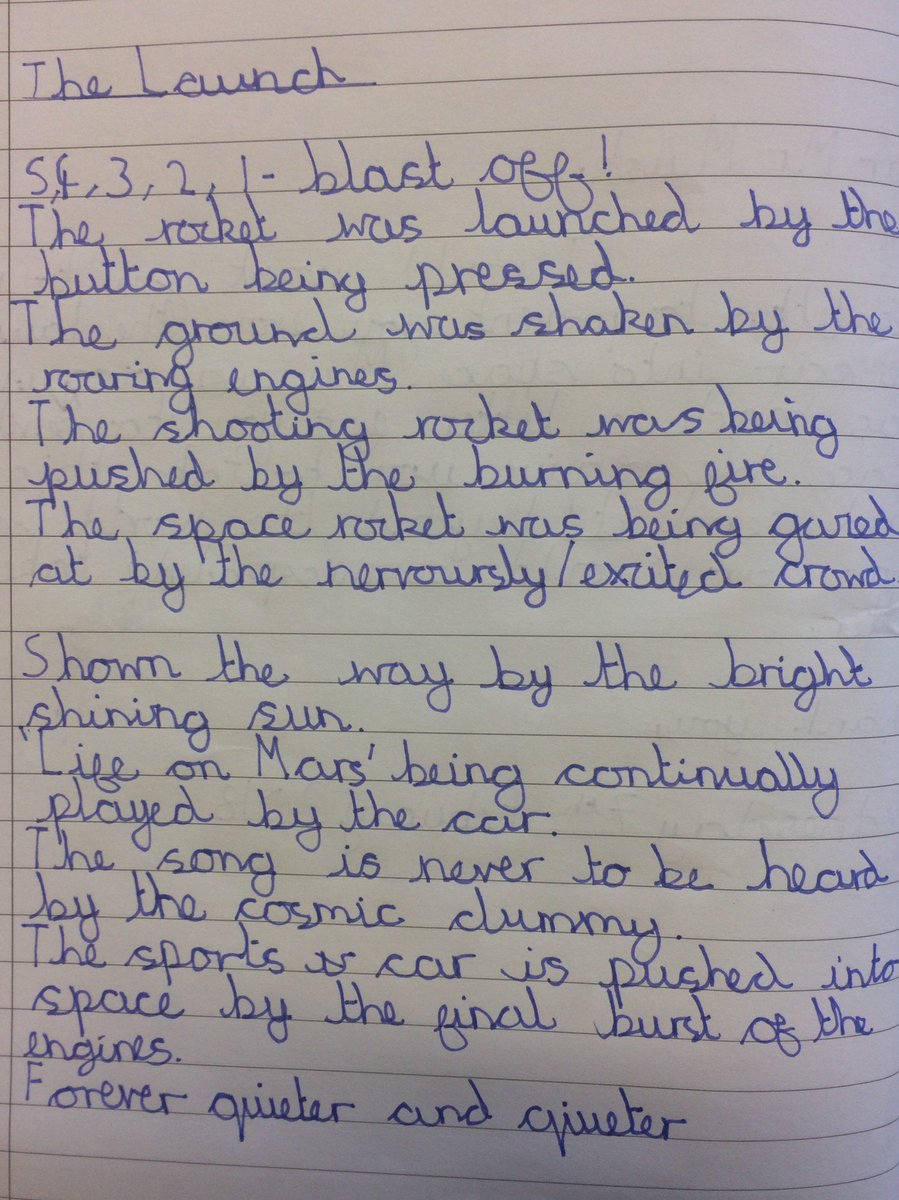 The Launch
5,4, 3, 2, 1 - blast off!
The rocket was launched by the
button being pressed.
The ground was shaken by the
roaring engines.
The shooting rocket was being
pushed by the burning fire.
The space rocket was being gazed
at by the nervoursly/excited crowd
Shown the way by the bright
shining sun.
'Life on Mars' being continually
played by the car.
The song is never to be heard
by the cosmic dummy.
The sports car is pushed into
space by the final burst of the
engines.
Forever quieter and qiueter